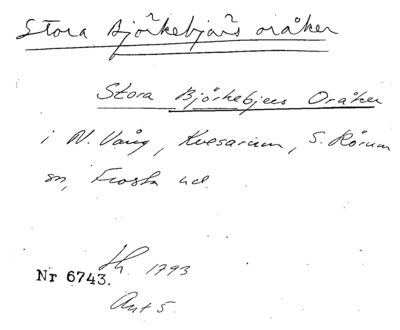 Stora Björkebjärs oråker
Stora Björkebjers Oråker
i N. Vång, Kvesarum, S. Rörum
sn, Frosta hd.
Lh. 1793
Nr 6743.
Akt 5.